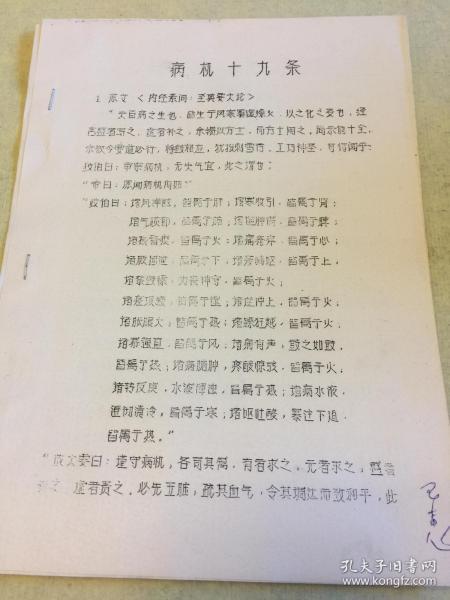 病机十九条
1. 原文<内经素问:至真要大论>
"夫百病之生也,皆生于风寒暑湿燥火,以之化之变也,经
言盛者泻之,虚者补之,余锡以方士,而方士用之,尚未能十全,
余欲令要道必行,桴鼓相应,犹拔刺雪污,工巧神圣,可得闻乎?
岐伯曰:审察病机,无失气宜,此之谓也。
"帝曰:愿闻病机何如"
"岐伯曰:诸风掉眩,皆属于肝;诸寒收引,皆属于肾;
诸气膹郁,皆属于肺;诸湿肿满,皆属于脾;
诸热瞀瘛,皆属于火;诸痛痒疮,皆属于心;
诸厥固泄,皆属于下,诸痿喘呕,皆属于上,
诸禁鼓慄,如丧神守,皆属于火;
诸痉项强,皆属于湿;诸逆冲上,皆属于火;
诸胀腹大,皆属于热;诸躁狂越,皆属于火;
诸暴强直,皆属于风;诸病有声,鼓之如鼓,
皆属于热;诸病胕肿,疼酸惊骇,皆属于火;
诸转反戾,水液浑浊,皆属于热;诸病水液,
澄彻清冷,皆属于寒;诸呕吐酸,暴注下迫,
皆属于热。"
"故大要曰:谨守病机,各司其属,有者求之,无者求之,盛者
责之,虚者责之,必先五脏,疏其血气,令其调达而致和平,此
孔夫子旧书网
www.kongfz.com